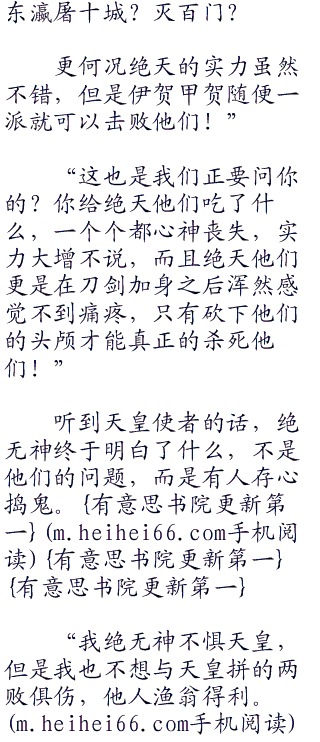 东瀛屠十城？灭百门？
更何况绝天的实力虽然
不错，但是伊贺甲贺随便一
派就可以击败他们！”
“这也是我们正要问你
的？你给绝天他们吃了什
么，一个个都心神丧失，实
力大增不说，而且绝天他们
更是在刀剑加身之后浑然感
觉不到痛疼，只有砍下他们
的头颅才能真正的杀死他
们！”
听到天皇使者的话，绝
无神终于明白了什么，不是
他们的问题，而是有人存心
捣鬼。{有意思书院更新第
一}(m.heihei66.com手机阅
读){有意思书院更新第一}
{有意思书院更新第一}
“我绝无神不惧天皇，
但是我也不想与天皇拼的两
败俱伤，他人渔翁得利。
(m.heihei66.com手机阅读)